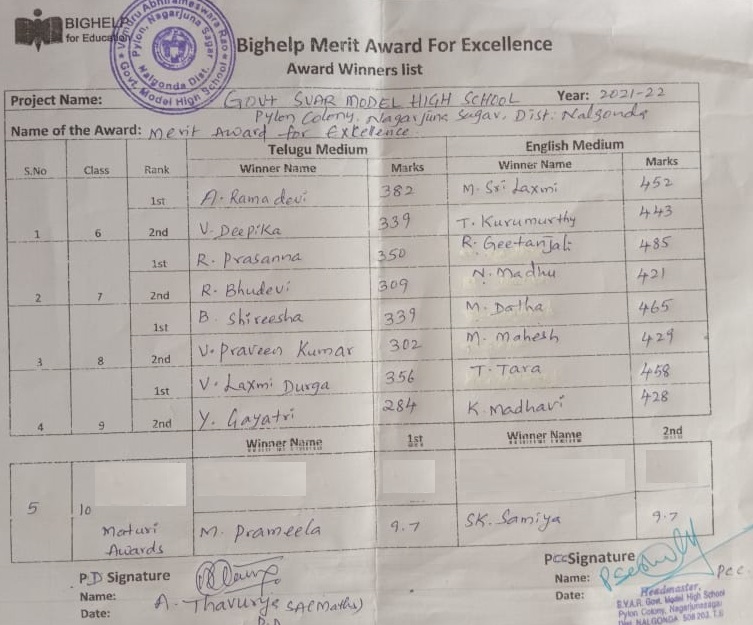 BIGHELP
for Education
Govt. Model High School
Nalgonda Dist.
Pylon, Nagarjuna Sagar
Bighelp Merit Award For Excellence
Award Winners list
Project Name: GOVT SVAR MODEL HIGH SCHOOL Year: 2021-22
Pylon Colony, Nagarjuna Sagar, Dist. Nalgonda
Name of the Award: Merit Award for Excellence
Telugu Medium English Medium
S.No Class Rank Winner Name Marks Winner Name Marks
1st A. Ramadevi 382 M. Sri Laxmi 452
1 6 2nd V. Deepika 339 T. Kurumurthy 443
1st R. Prasanna 350 R. Geetanjali 485
2 7 2nd R. Bhudevi 309 N. Madhu 421
1st B. Shireesha 339 M. Datha 465
3 8 2nd V. Praveen Kumar 302 M. Mahesh 429
1st V. Laxmi Durga 356 T. Tara 458
4 9 2nd Y. Gayatri 284 K. Madhavi 428
Winner Name 1st Winner Name 2nd
5 10
Maturi M. Prameela 9.7 SK. Samiya 9.7
Awards
P.D Signature PCC Signature
Name: Name: Pcc.
A. Thavurya SA(Maths)
Date: Date:
P.D
Headmaster,
S.V.A.R. Govt. Model High School
Pylon Colony, Nagarjunasagar
Dist. NALGONDA 508 202, T.S